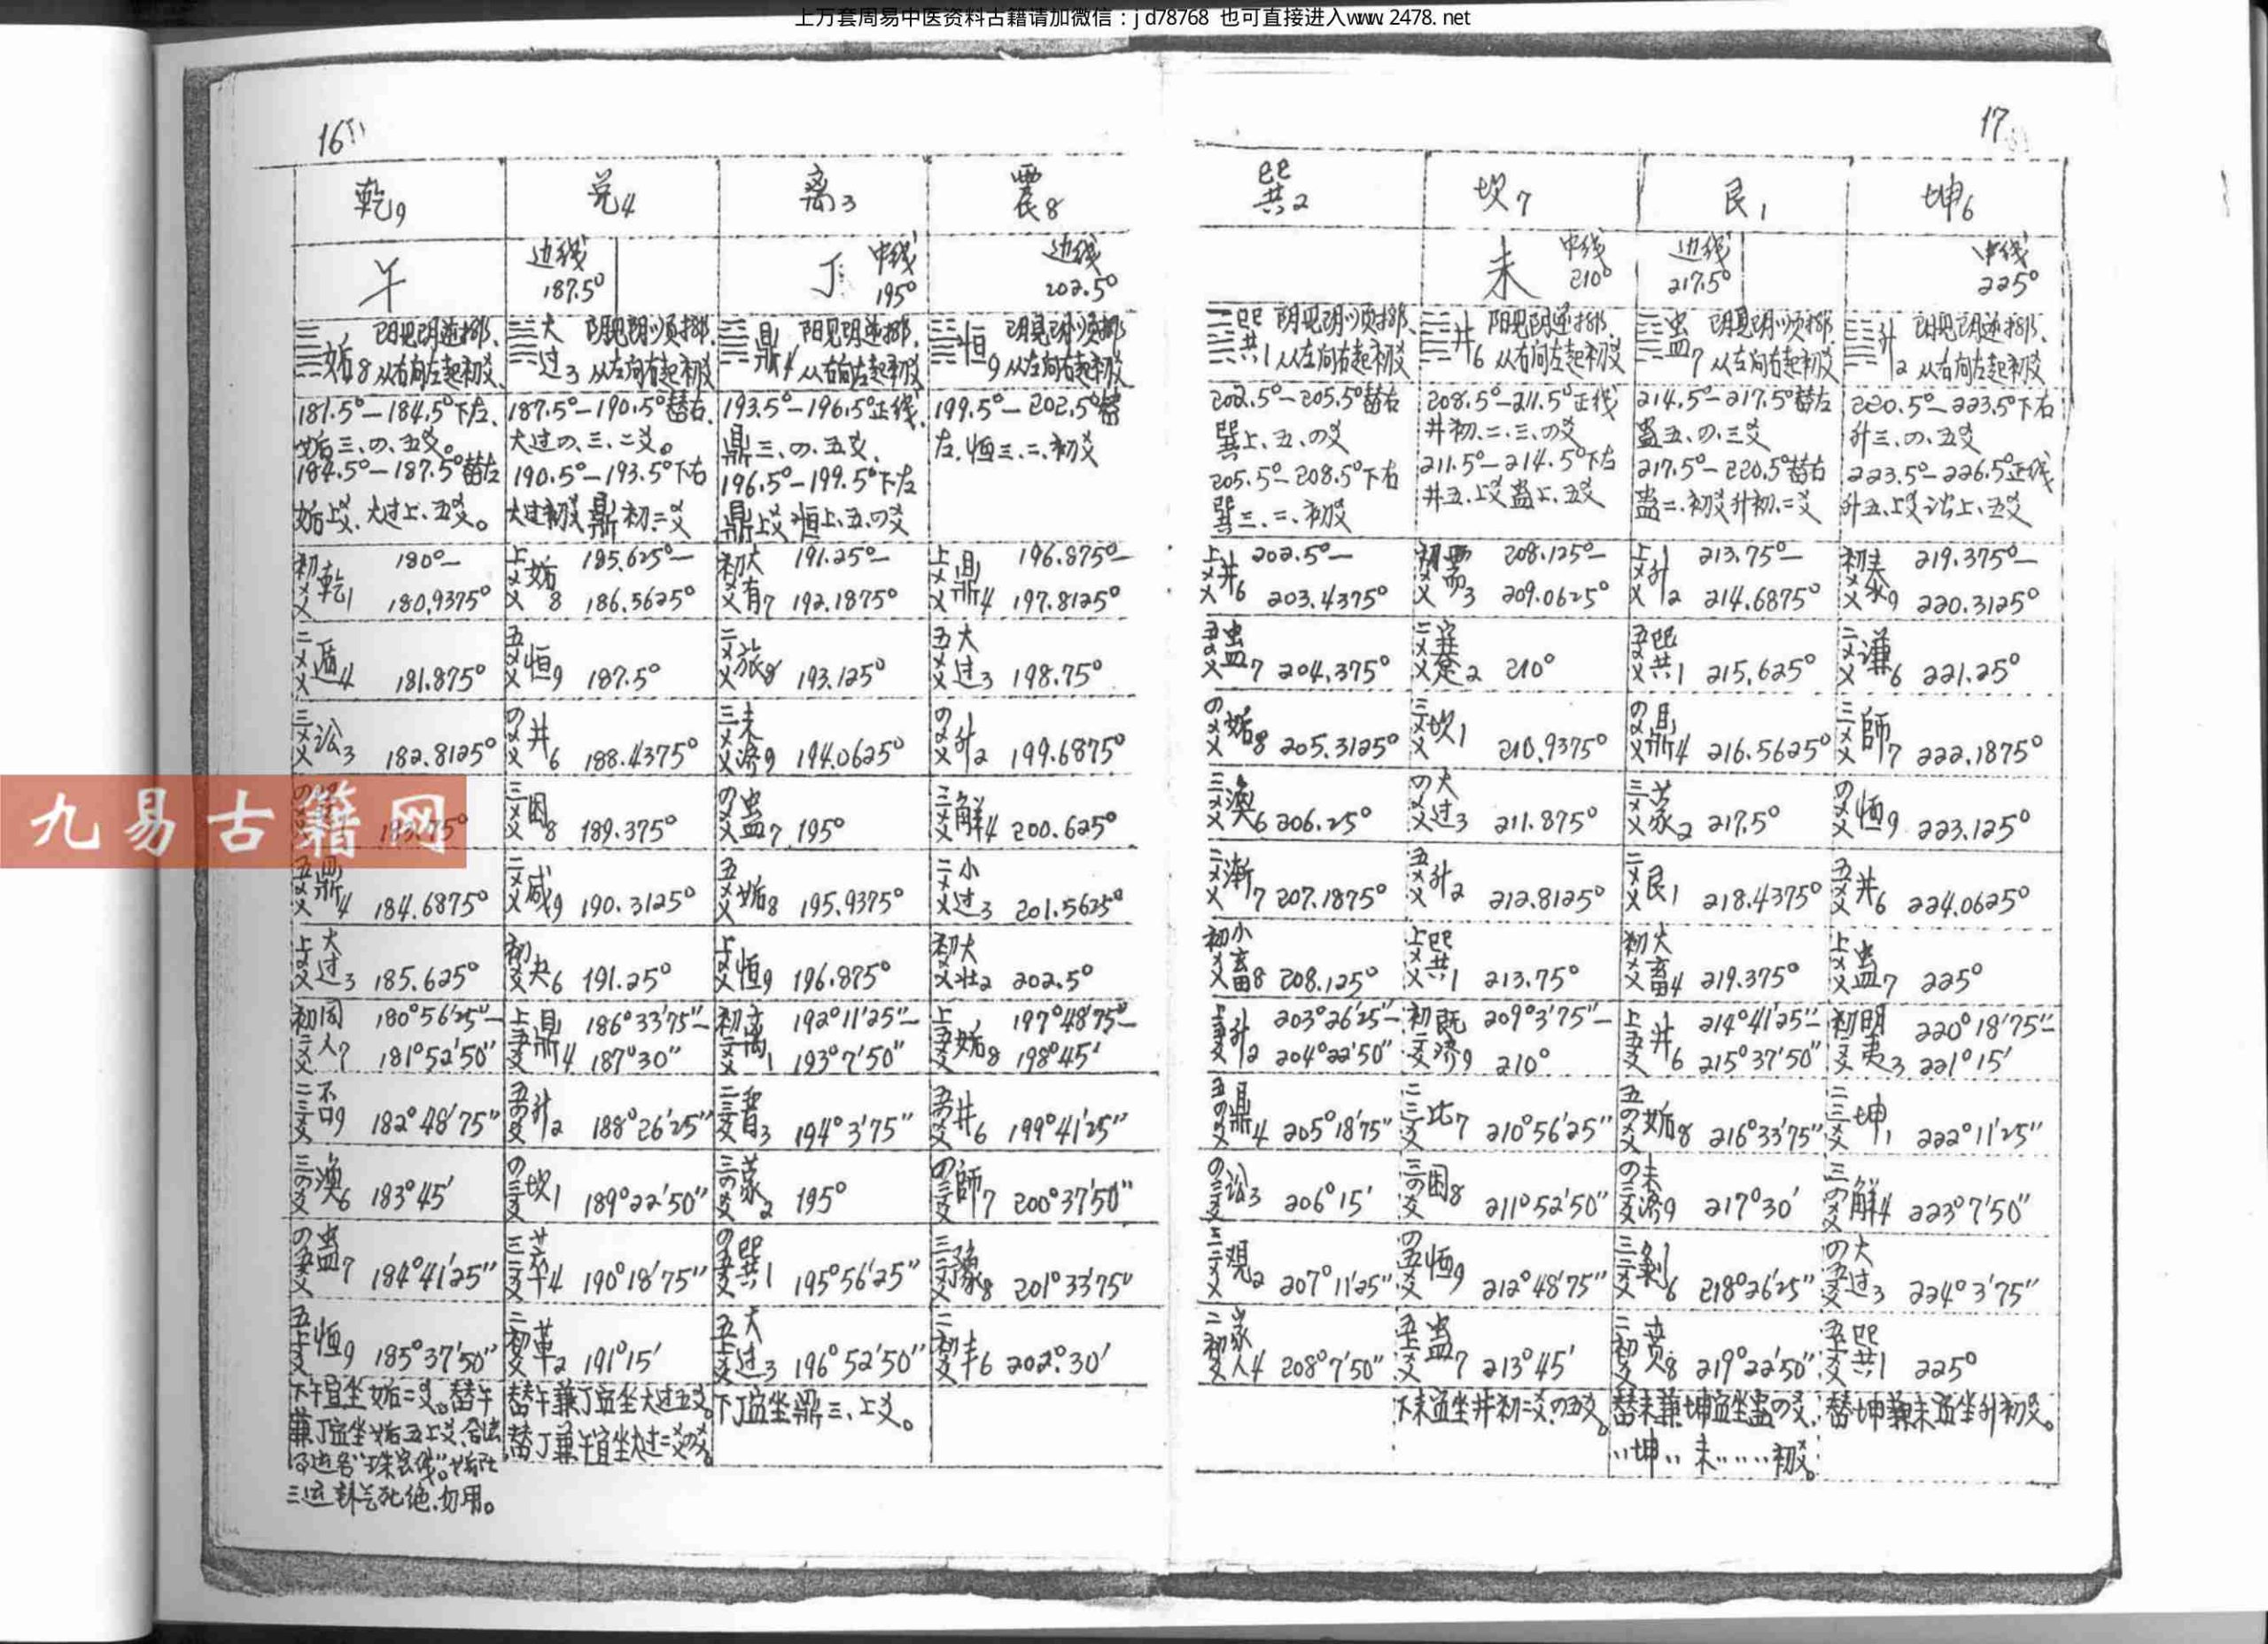 上万套周易中医资料古籍请加微信：jd78768 也可直接进入www.2478.net
16
乾9 兑4 离3 震8
午 边线 187.5° 丁 中线 195° 边线 202.5°
姤8 阳见阴逆挪、从右向左起初爻
大过3 阴见阴顺挪、从左向右起初爻
鼎4 阳见阴逆挪、从右向左起初爻
恒9 阴见阴顺挪 从左向右起初爻
181.5°—184.5°下左、
姤三、の、五爻。
184.5°—187.5°替左
姤上爻、大过上、五爻。
187.5°—190.5°替右.
大过の、三、二爻。
190.5°—193.5°下右
大过初爻鼎初二爻
193.5°—196.5°正线.
鼎三、の、五爻.
196.5°—199.5°下左
鼎上爻恒上、五、の爻
199.5°—202.5°替
左.恒三、二、初爻
初爻 乾1 180°— 180.9375°
上爻 姤8 185.625°— 186.5625°
初爻 大有7 191.25°— 192.1875°
上爻 鼎4 196.875°— 197.8125°
二爻 遁4 181.875°
五爻 恒9 187.5°
二爻 旅8 193.125°
五爻 大过3 198.75°
三爻 讼3 182.8125°
の爻 井6 188.4375°
三爻 未济9 194.0625°
の爻 升2 199.6875°
九易古籍网
三爻 困8 189.375°
の爻 蛊7 195°
三爻 解4 200.625°
五爻 鼎4 184.6875°
二爻 咸9 190.3125°
五爻 姤8 195.9375°
二爻 小过3 201.5625°
上爻 大过3 185.625°
初爻 夬6 191.25°
上爻 恒9 196.875°
初爻 大壮2 202.5°
初二爻 同人7 180°56′25″— 181°52′50″
上五爻 鼎4 186°33′75″— 187°30″
初二爻 离1 192°11′25″— 193°7′50″
上五爻 姤8 197°48′75″— 198°45′
二三爻 不口9 182°48′75″
五の爻 升2 188°26′25″
二三爻 晋3 194°3′75″
五の爻 井6 199°41′25″
三の爻 渙6 183°45′
の三爻 坎1 189°22′50″
三の爻 蒙2 195°
の三爻 師7 200°37′50″
の五爻 蛊7 184°41′25″
三二爻 萃4 190°18′75″
の五爻 巽1 195°56′25″
三二爻 豫8 201°33′75″
五上爻 恒9 185°37′50″
二初爻 革2 191°15′
五上爻 大过3 196°52′50″
二初爻 丰6 202°30′
下午宜坐姤二爻。替午
兼丁宜坐姤五上爻、合法
三运 死绝.勿用。
替午兼丁宜坐大过五爻。
替丁兼午宜坐大过二爻の爻。
下丁宜坐鼎三、上爻。
17
巽2 坎7 艮1 坤6
未 中线 210° 边线 217.5° 中线 225°
巽1 阴见阴顺挪、从左向右起初爻
井6 阳见阴逆挪、从右向左起初爻
蛊7 阴见阴顺挪、从左向右起初爻
升2 阳见阴逆挪、从右向左起初爻
202.5°—205.5°替右
巽上、五、の爻
205.5°—208.5°下右
巽三、二、初爻
208.5°—211.5°正线
井初、二、三、の爻
211.5°—214.5°下左
井五、上爻蛊上、五爻
214.5°—217.5°替左
蛊五、の、三爻
217.5°—220.5°替右
蛊二、初爻升初、二爻
220.5°—223.5°下右
升三、の、五爻
223.5°—226.5°正线
升五、上爻讼上、五爻
上爻 井6 202.5°— 203.4375°
初爻 需3 208.125°— 209.0625°
上爻 升2 213.75°— 214.6875°
初爻 泰9 219.375°— 220.3125°
五爻 蛊7 204.375°
二爻 蹇2 210°
五爻 巽1 215.625°
二爻 谦6 221.25°
の爻 姤8 205.3125°
三爻 坎1 210.9375°
の爻 鼎4 216.5625°
三爻 師7 222.1875°
三爻 渙6 206.25°
の爻 大过3 211.875°
三爻 蒙2 217.5°
の爻 恒9 223.125°
二爻 渐7 207.1875°
五爻 升2 212.8125°
二爻 艮1 218.4375°
五爻 井6 224.0625°
初爻 小畜8 208.125°
上爻 巽1 213.75°
初爻 大畜4 219.375°
上爻 蛊7 225°
上五爻 升2 203°26′25″— 204°22′50″
初二爻 既济9 209°3′75″— 210°
上五爻 井6 214°41′25″— 215°37′50″
初二爻 明夷3 220°18′75″— 221°15′
五の爻 鼎4 205°18′75″
二三爻 比7 210°56′25″
五の爻 姤8 216°33′75″
二三爻 坤1 222°11′25″
の三爻 讼3 206°15′
三の爻 困8 211°52′50″
の三爻 未济9 217°30′
三の爻 解4 223°7′50″
三二爻 观2 207°11′25″
の五爻 恒9 212°48′75″
三二爻 剥6 218°26′25″
の五爻 大过3 224°3′75″
二初爻 家人4 208°7′50″
五上爻 蛊7 213°45′
二初爻 贲8 219°22′50″
五上爻 巽1 225°
下未宜坐井初二爻、の五爻。
替未兼坤宜坐蛊の爻.
‥坤‥未‥‥‥初爻。
替坤兼未宜坐升初爻。